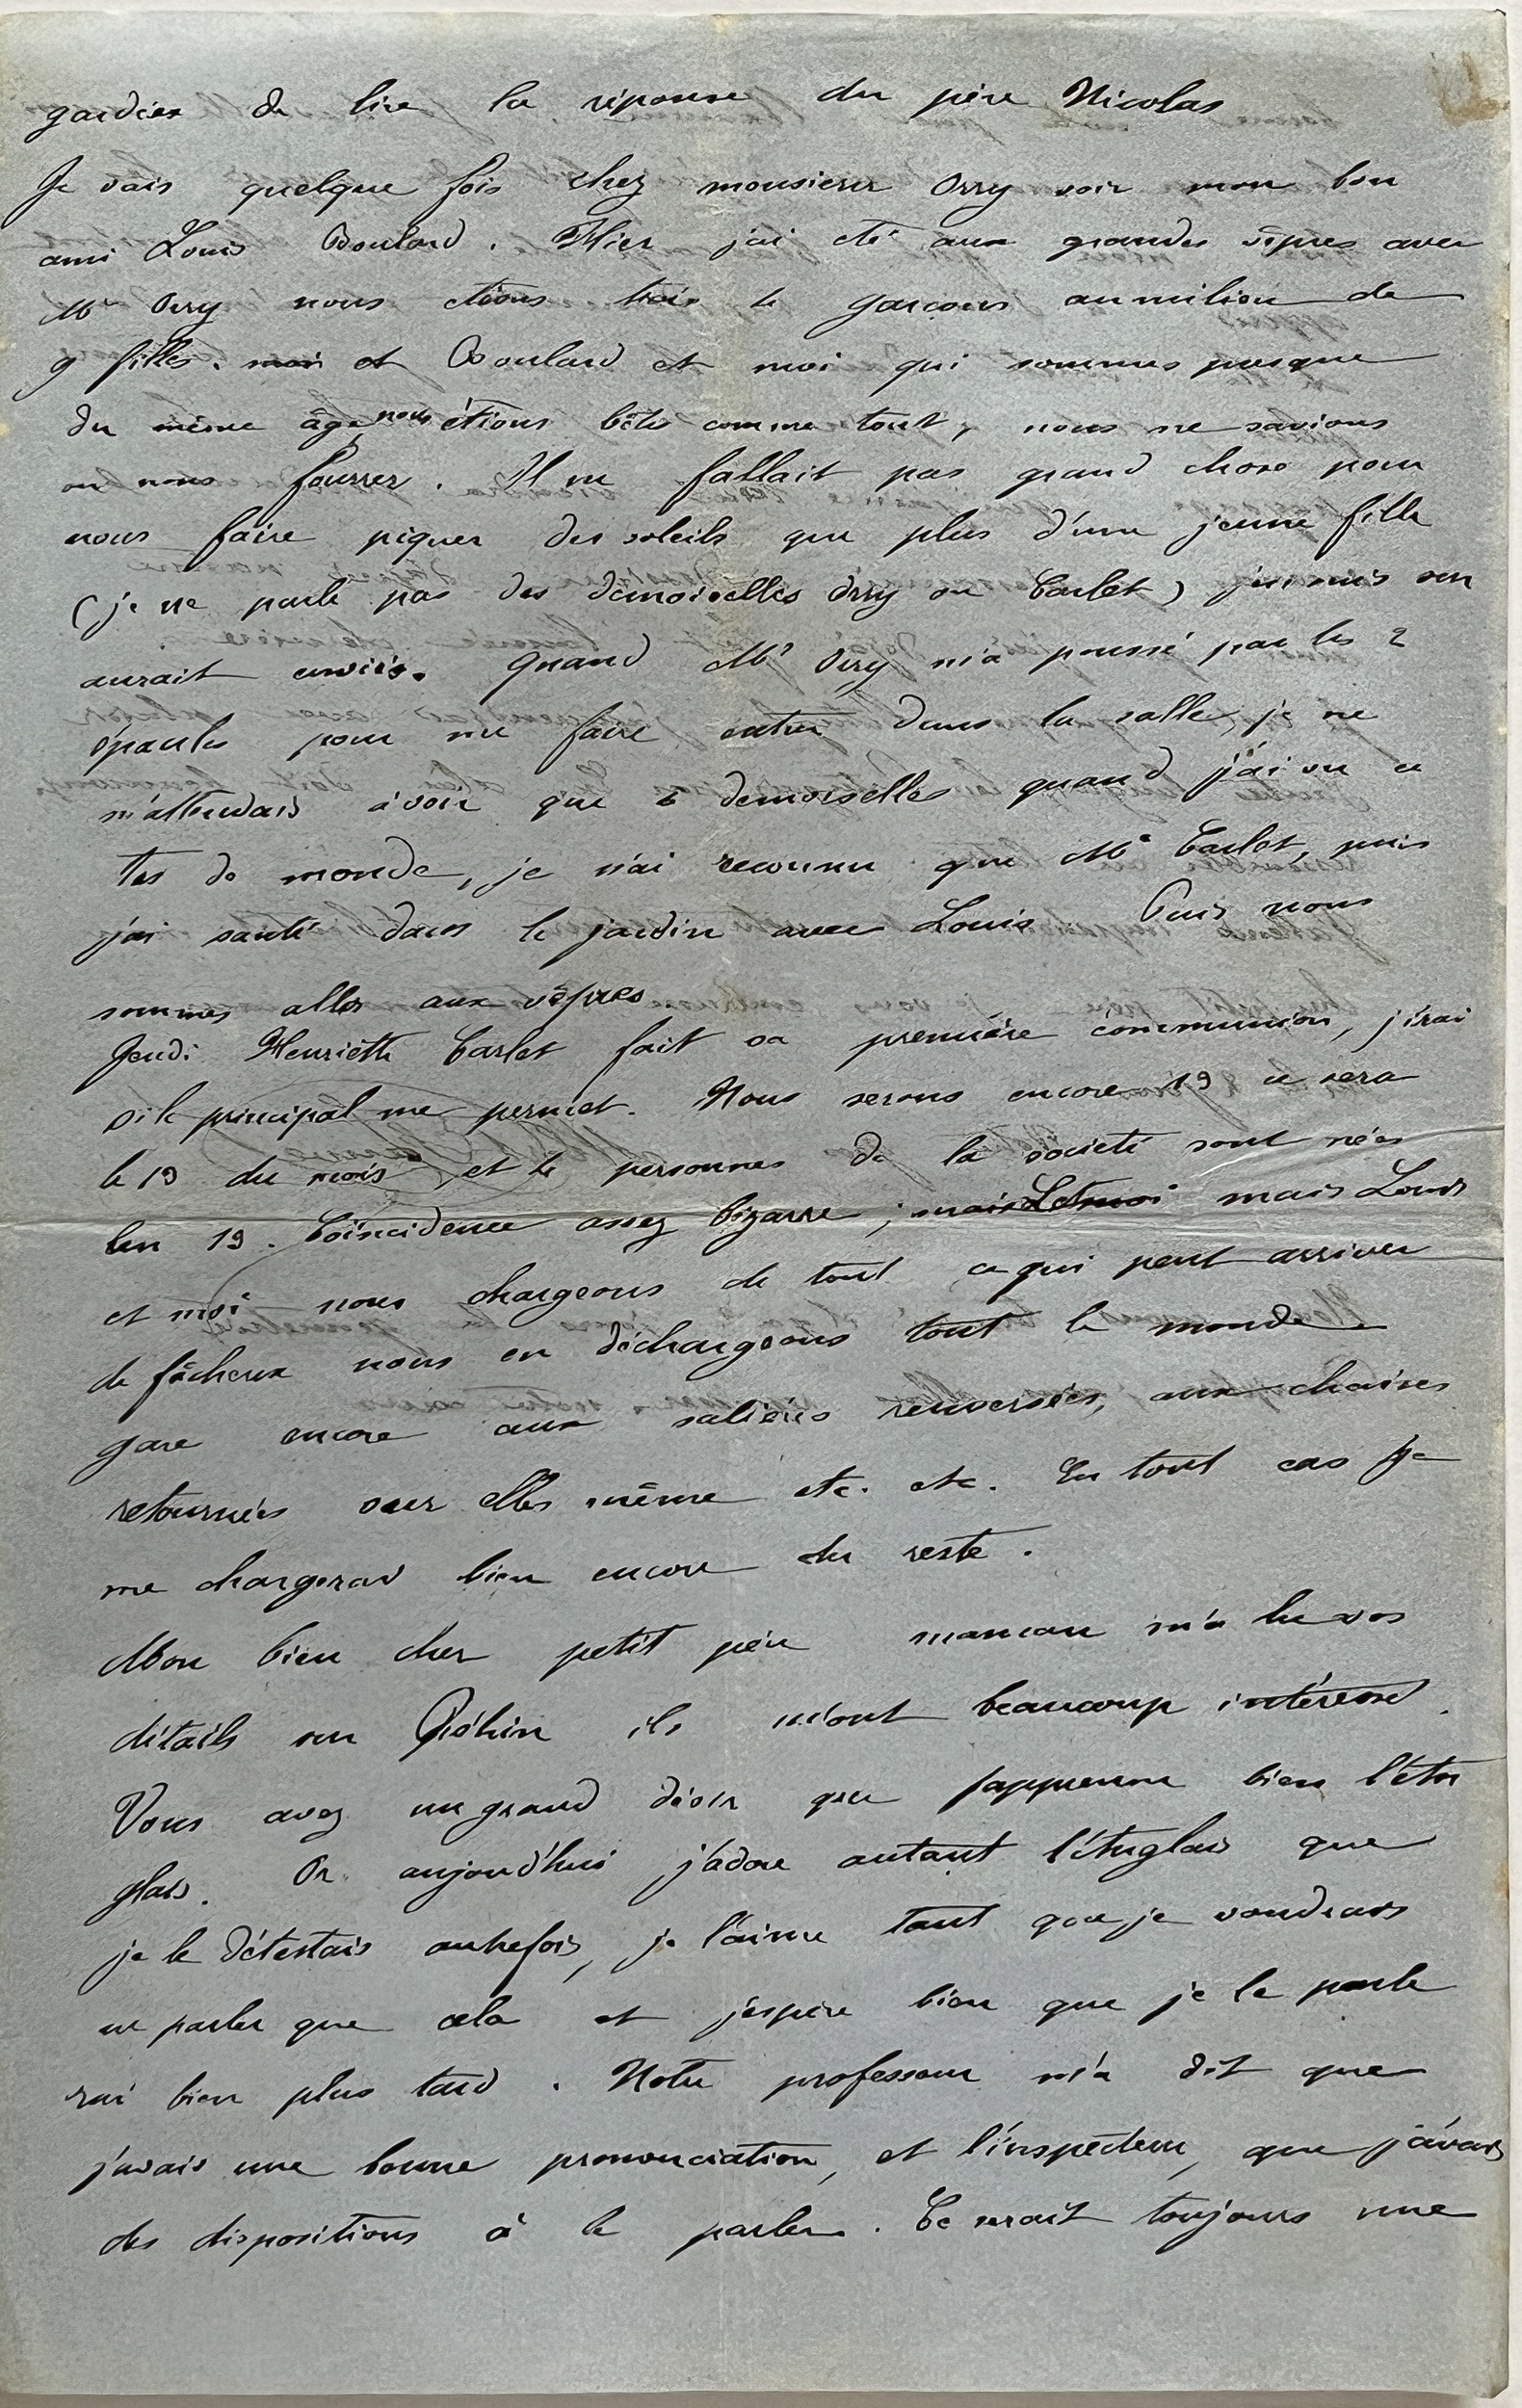 gardées de lire la réponse du père Nicolas
Je vais quelque fois chez monsieur Orry voir mon bon
ami Louis Boulard. Hier j'ai été aux grandes vêpres avec
Mr Orry nous étions trois garçons au milieu de
9 filles. moi et Boulard et moi qui sommes presque
du même âge nous étions bêtes comme tout, nous ne savions
ou nous fourrer. Il ne fallait pas grand chose pour
nous faire piquer des soleils que plus d'une jeune fille
(je ne parle pas des demoiselles Orry ou Carlet) j'en suis sur
aurait enviés. Quand Mr Orry m'a poussé par les 2
épaules pour me faire entrer dans la salle, je ne
m'attendais à voir que 6 demoiselles quand j'ai vu ce
tas de monde, je n'ai reconnu que Me Carlet, puis
j'ai sauté dans le jardin avec Louis Puis nous
sommes allés aux vêpres.
Jeudi Henriette Carlet fait sa première communion, j'irai
si le principal me permet. Nous serons encore 19 ce sera
le 19 du mois et personnes de la société sont nées
le 19. Coïncidence assez bizarre; mais L et moi mais Louis
et moi nous chargeons de tout ce qui peut arriver
de fâcheux nous en déchargeons tout le monde
gare encore aux salières renversées, aux chaises
retournées sur elles même etc. etc. En tout cas je
me chargerai bien encore du reste.
Mon bien cher petit père maman m'a lu vos
détails sur ils m'ont beaucoup intéressé.
Vous avez un grand désir que j'apprenne bien l'An
glais. Or aujourd'hui j'adore autant l'Anglais que
je le détestais autrefois, je l'aime tant que je voudrais
ne parler que cela et j'espère bien que je le parle
rai bien plus tard. Notre professeur m'a dit que
j'avais une bonne prononciation, et l'inspecteur, que j'avais
des dispositions à le parler. Ce serait toujours une